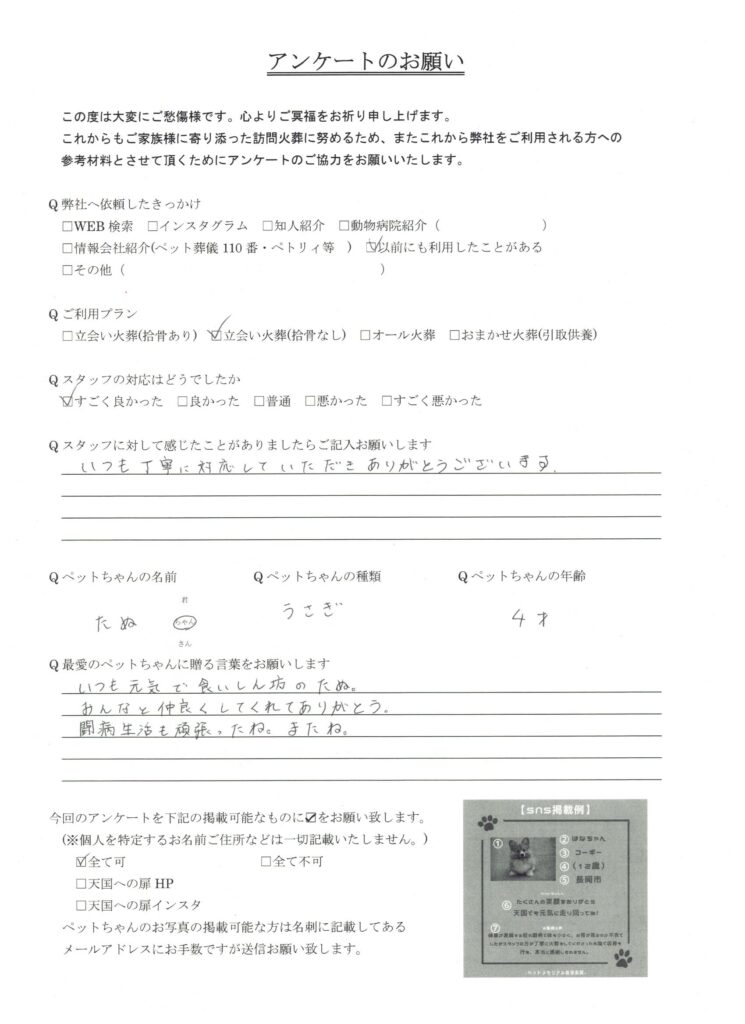 アンケートのお願い
この度は大変にご愁傷様です。心よりご冥福をお祈り申し上げます。
これからもご家族様に寄り添った訪問火葬に努めるため、またこれから弊社をご利用される方への
参考材料とさせて頂くためにアンケートのご協力をお願いいたします。
Q 弊社へ依頼したきっかけ
□WEB 検索 □インスタグラム □知人紹介 □動物病院紹介（ ）
□情報会社紹介(ペット葬儀 110 番・ペトリィ等 ) ☑以前にも利用したことがある
□その他（ ）
Q ご利用プラン
□立会い火葬(拾骨あり) ☑立会い火葬(拾骨なし) □オール火葬 □おまかせ火葬(引取供養)
Q スタッフの対応はどうでしたか
☑すごく良かった □良かった □普通 □悪かった □すごく悪かった
Q スタッフに対して感じたことがありましたらご記入お願いします
いつも丁寧に対応していただきありがとうございます。
Q ペットちゃんの名前 Q ペットちゃんの種類 Q ペットちゃんの年齢
君
たぬ ちゃん うさぎ 4才
さん
Q 最愛のペットちゃんに贈る言葉をお願いします
いつも元気で食いしん坊のたぬ。
おんなと仲良くしてくれてありがとう。
闘病生活も頑張ったね。またね。
今回のアンケートを下記の掲載可能なものに☑をお願い致します。
(※個人を特定するお名前ご住所などは一切記載いたしません。)
☑全て可 □全て不可
□天国への扉 HP
□天国への扉インスタ
ペットちゃんのお写真の掲載可能な方は名刺に記載してある
メールアドレスにお手数ですが送信お願い致します。
【sns掲載例】
① ② はなちゃん
③ コーギー
④ （12歳）
⑤ 長岡市
⑥ たくさんの笑顔をありがとう
天国でも元気に走り回ってね!
⑦